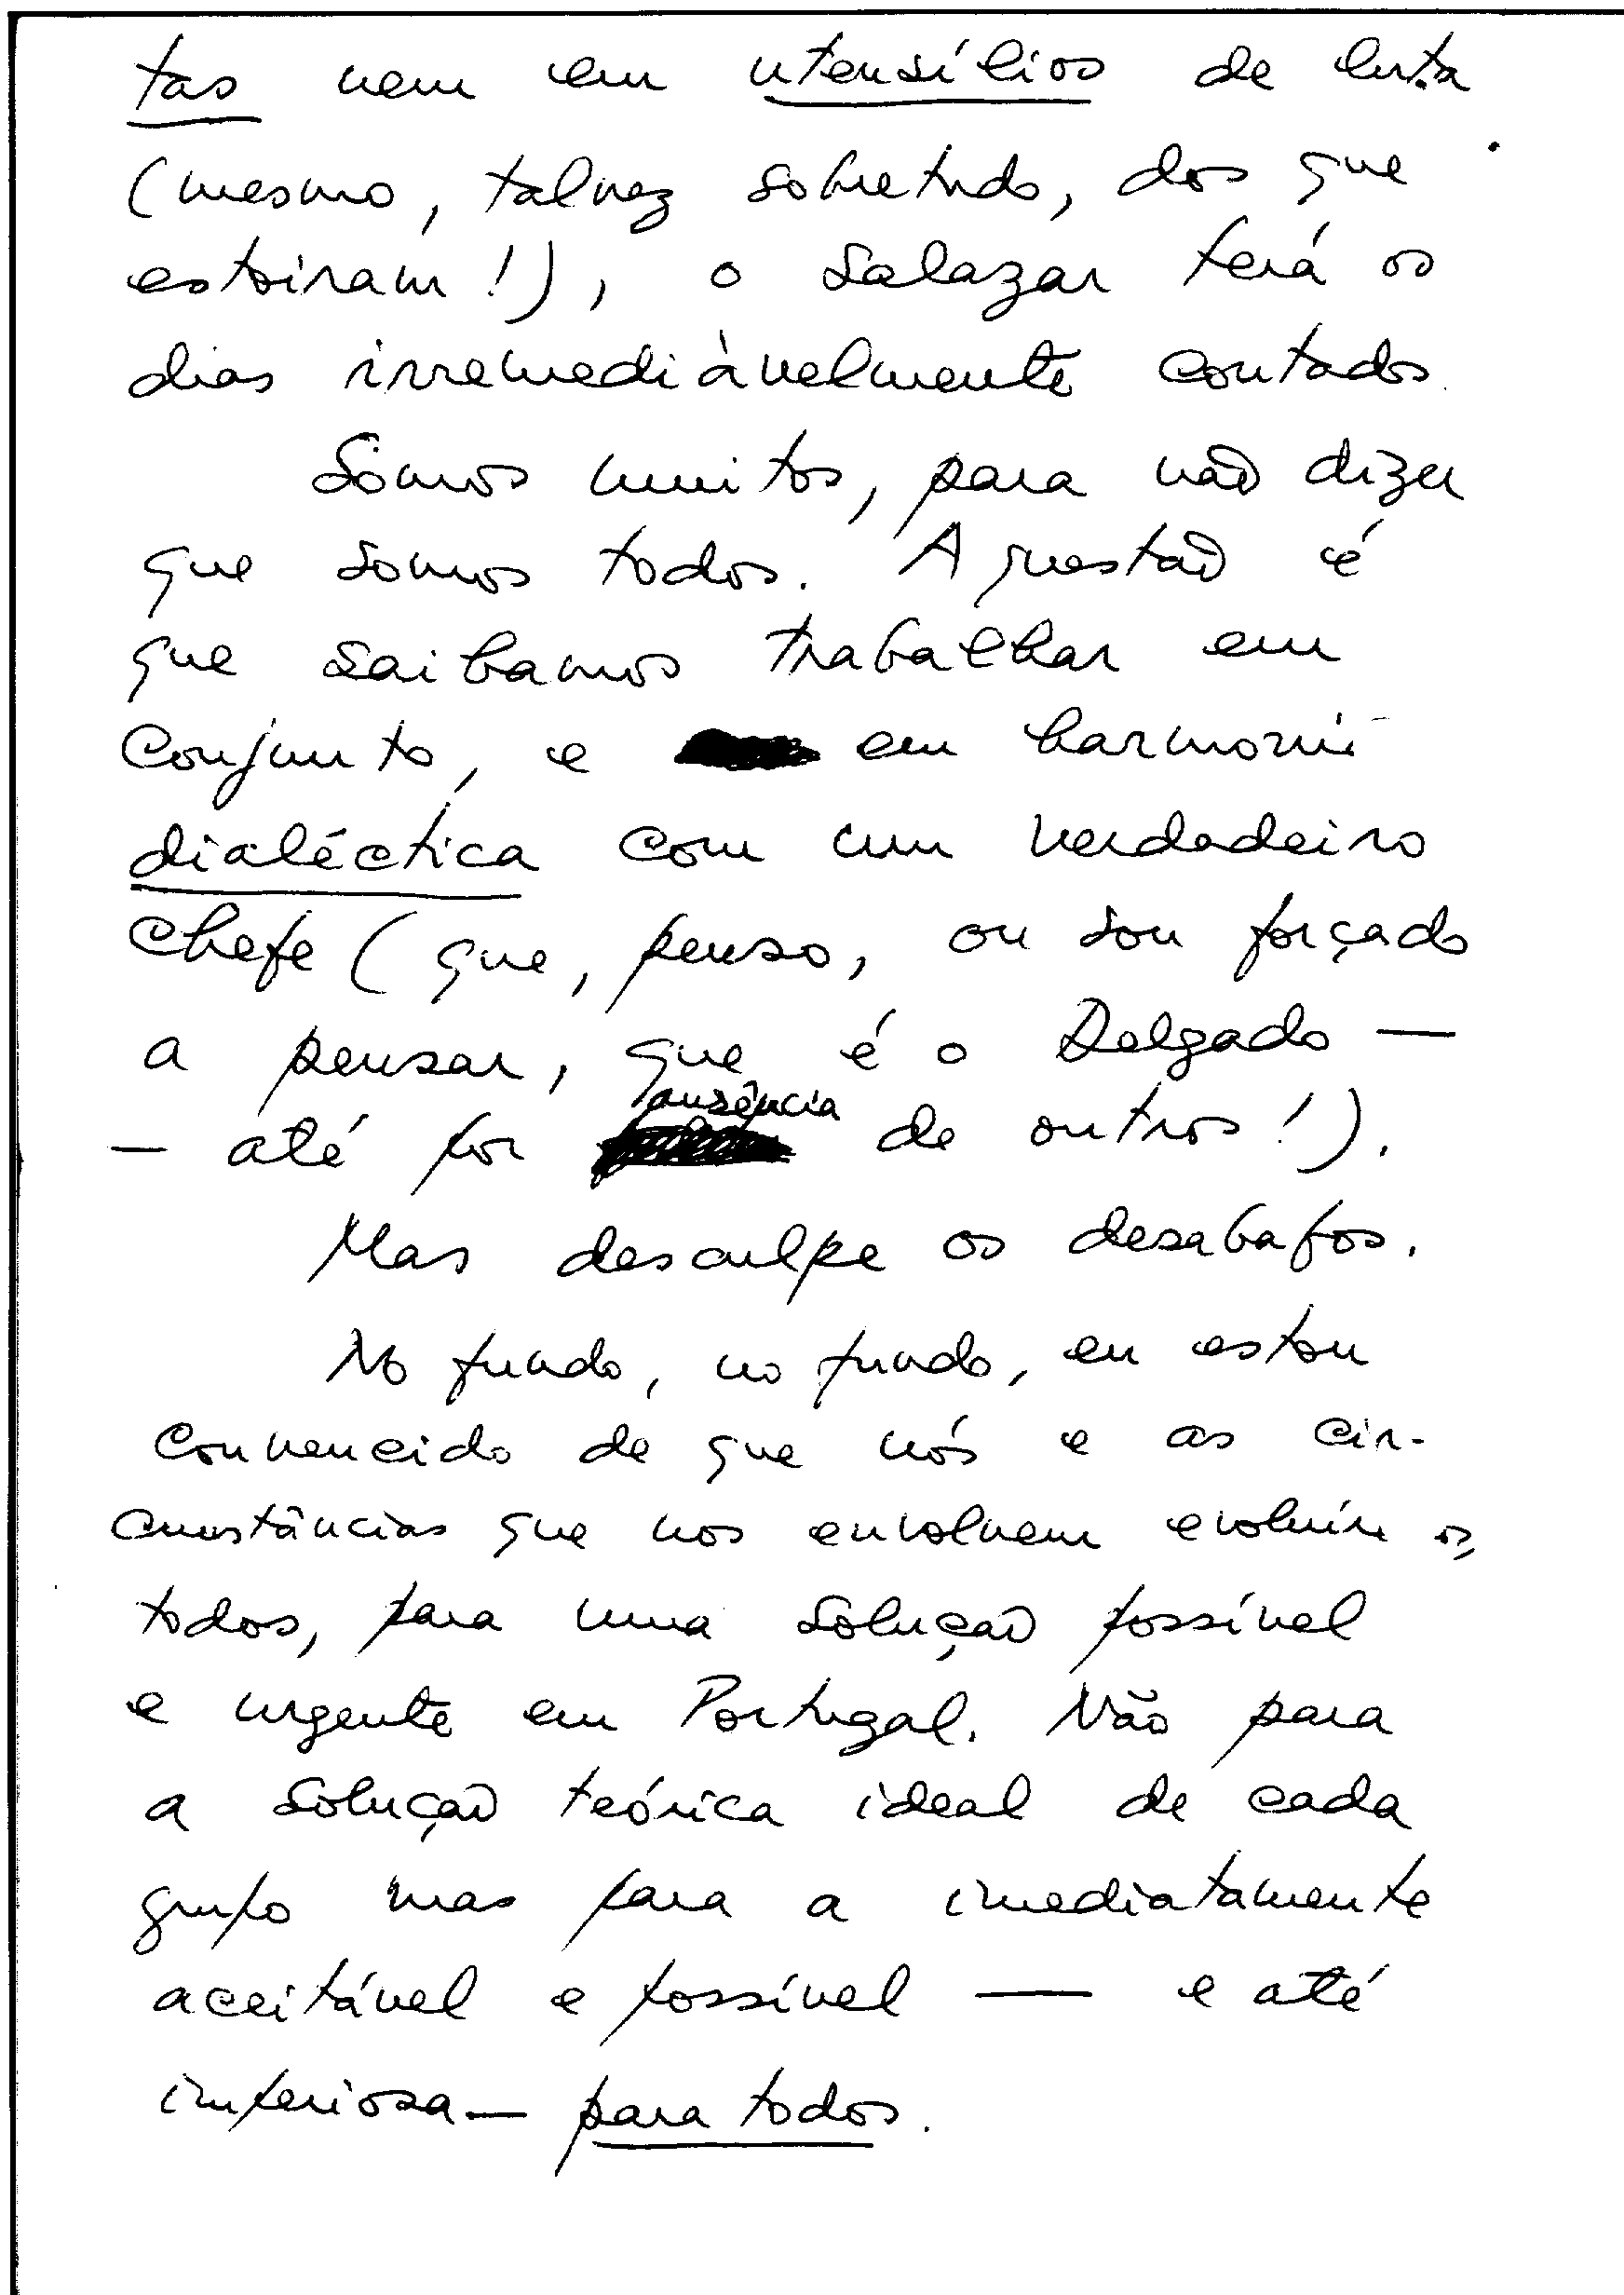 tas nem em utensílios de luta
(mesmo, talvez sobretudo, dos que
estoiram!), o Salazar terá os
dias irremediàvelmente contados.
Somos muitos, para não dizer
que somos todos. A questão é
que saibamos trabalhar em
conjunto, e em harmoni
dialéctica com um verdadeiro
chefe (que, penso, ou sou forçado
a pensar, que é o Delgado —
— até por ausência de outros!).
Mas desculpe os desabafos.
No fundo, no fundo, eu estou
convencido de que nós e as cir-
cunstâncias que nos envolvem
todos, para uma solução possível
e urgente em Portugal. Não para
a solução teórica ideal de cada
grupo mas para a imediatamente
aceitável e possível — e até
imperiosa — para todos.